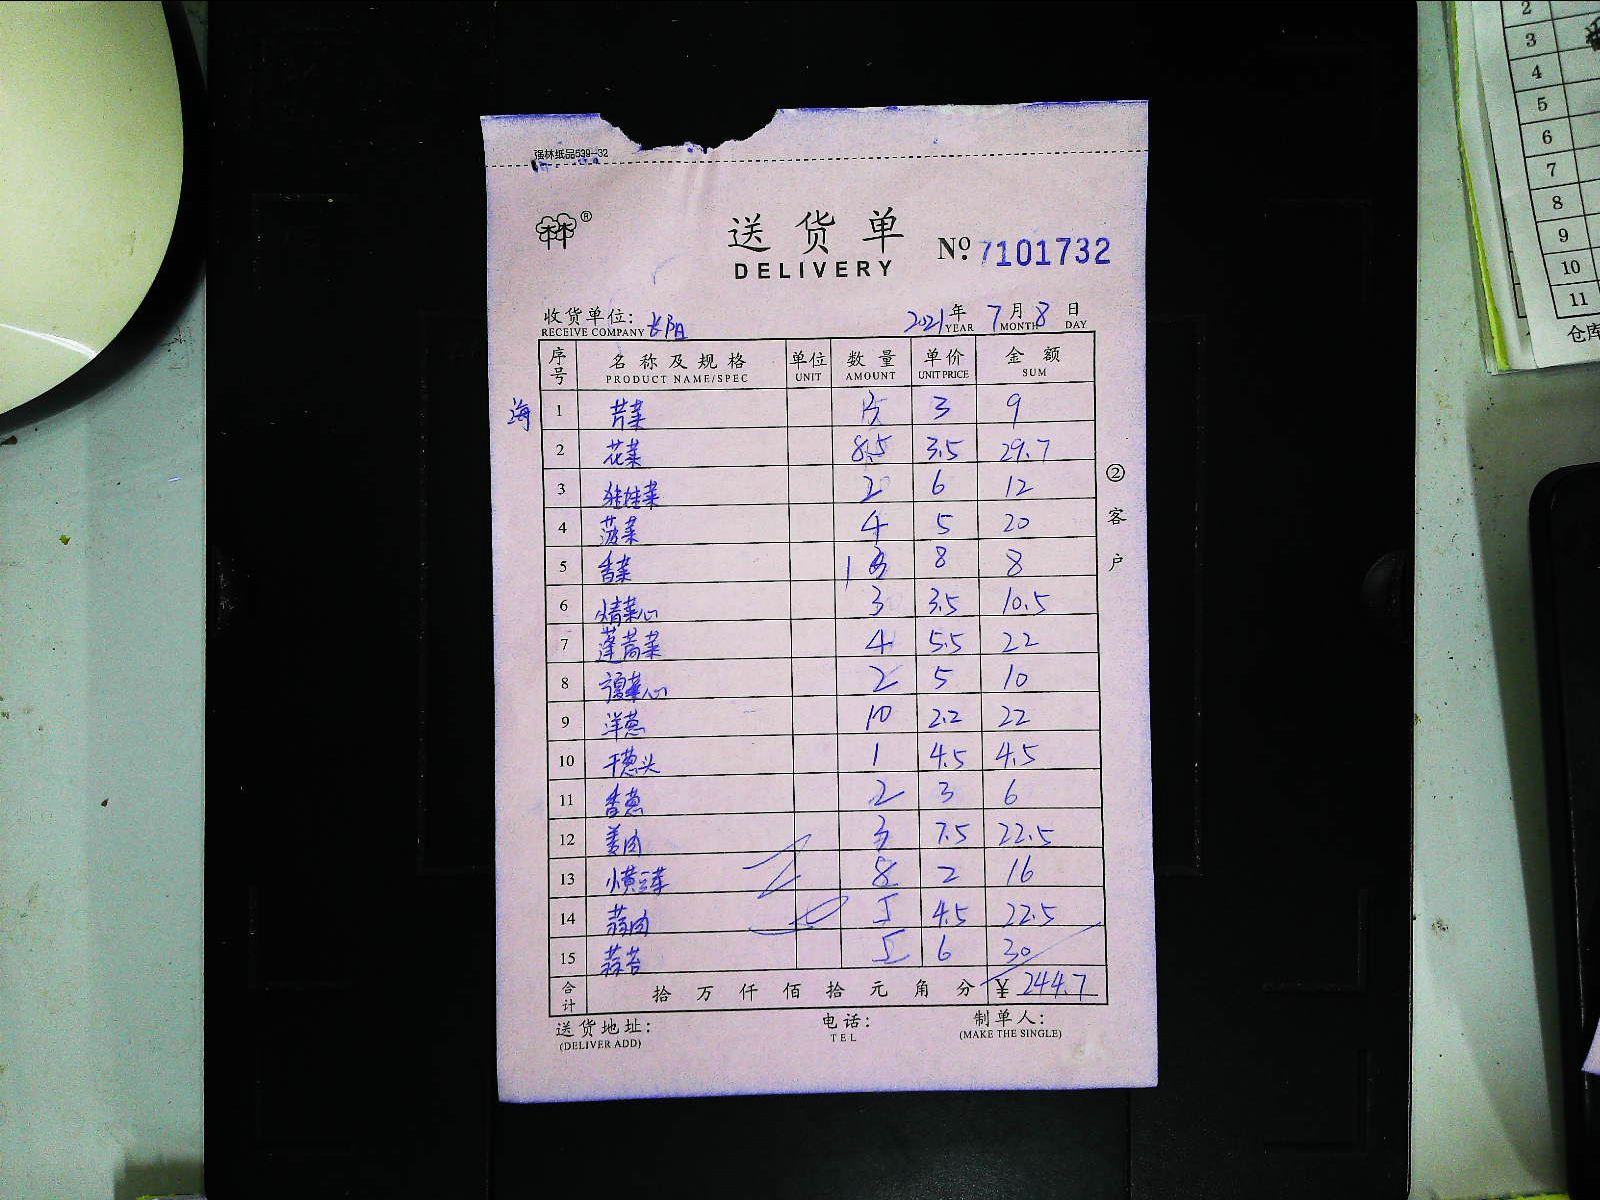 强林纸品539-32
®
送货单
DELIVERY
No. 7101732
收货单位: 长阳 2021 年 7 月 8 日
RECEIVE COMPANY YEAR MONTH DAY
序号 名称及规格 单位 数量 单价 金额
PRODUCT NAME/SPEC UNIT AMOUNT UNIT PRICE SUM
海
1 芹菜 3 9
2 花菜 8.5 3.5 29.7
3 娃娃菜 2 6 12
4 菠菜 4 5 20
5 香菜 1 8 8
6 3 3.5 10.5
7 蓬蒿菜 4 5.5 22
8 2 5 10
9 洋葱 10 2.2 22
10 干葱头 1 4.5 4.5
11 香葱 2 3 6
12 姜肉 3 7.5 22.5
13 小黄豆菜 8 2 16
14 蒜肉 5 4.5 22.5
15 蒜苔 5 6 30
合计 拾 万 仟 佰 拾 元 角 分 ¥ 244.7
送货地址: 电话: 制单人:
(DELIVER ADD) TEL (MAKE THE SINGLE)
② 客户
2
3
4
5
6
7
8
9
10
11
仓库